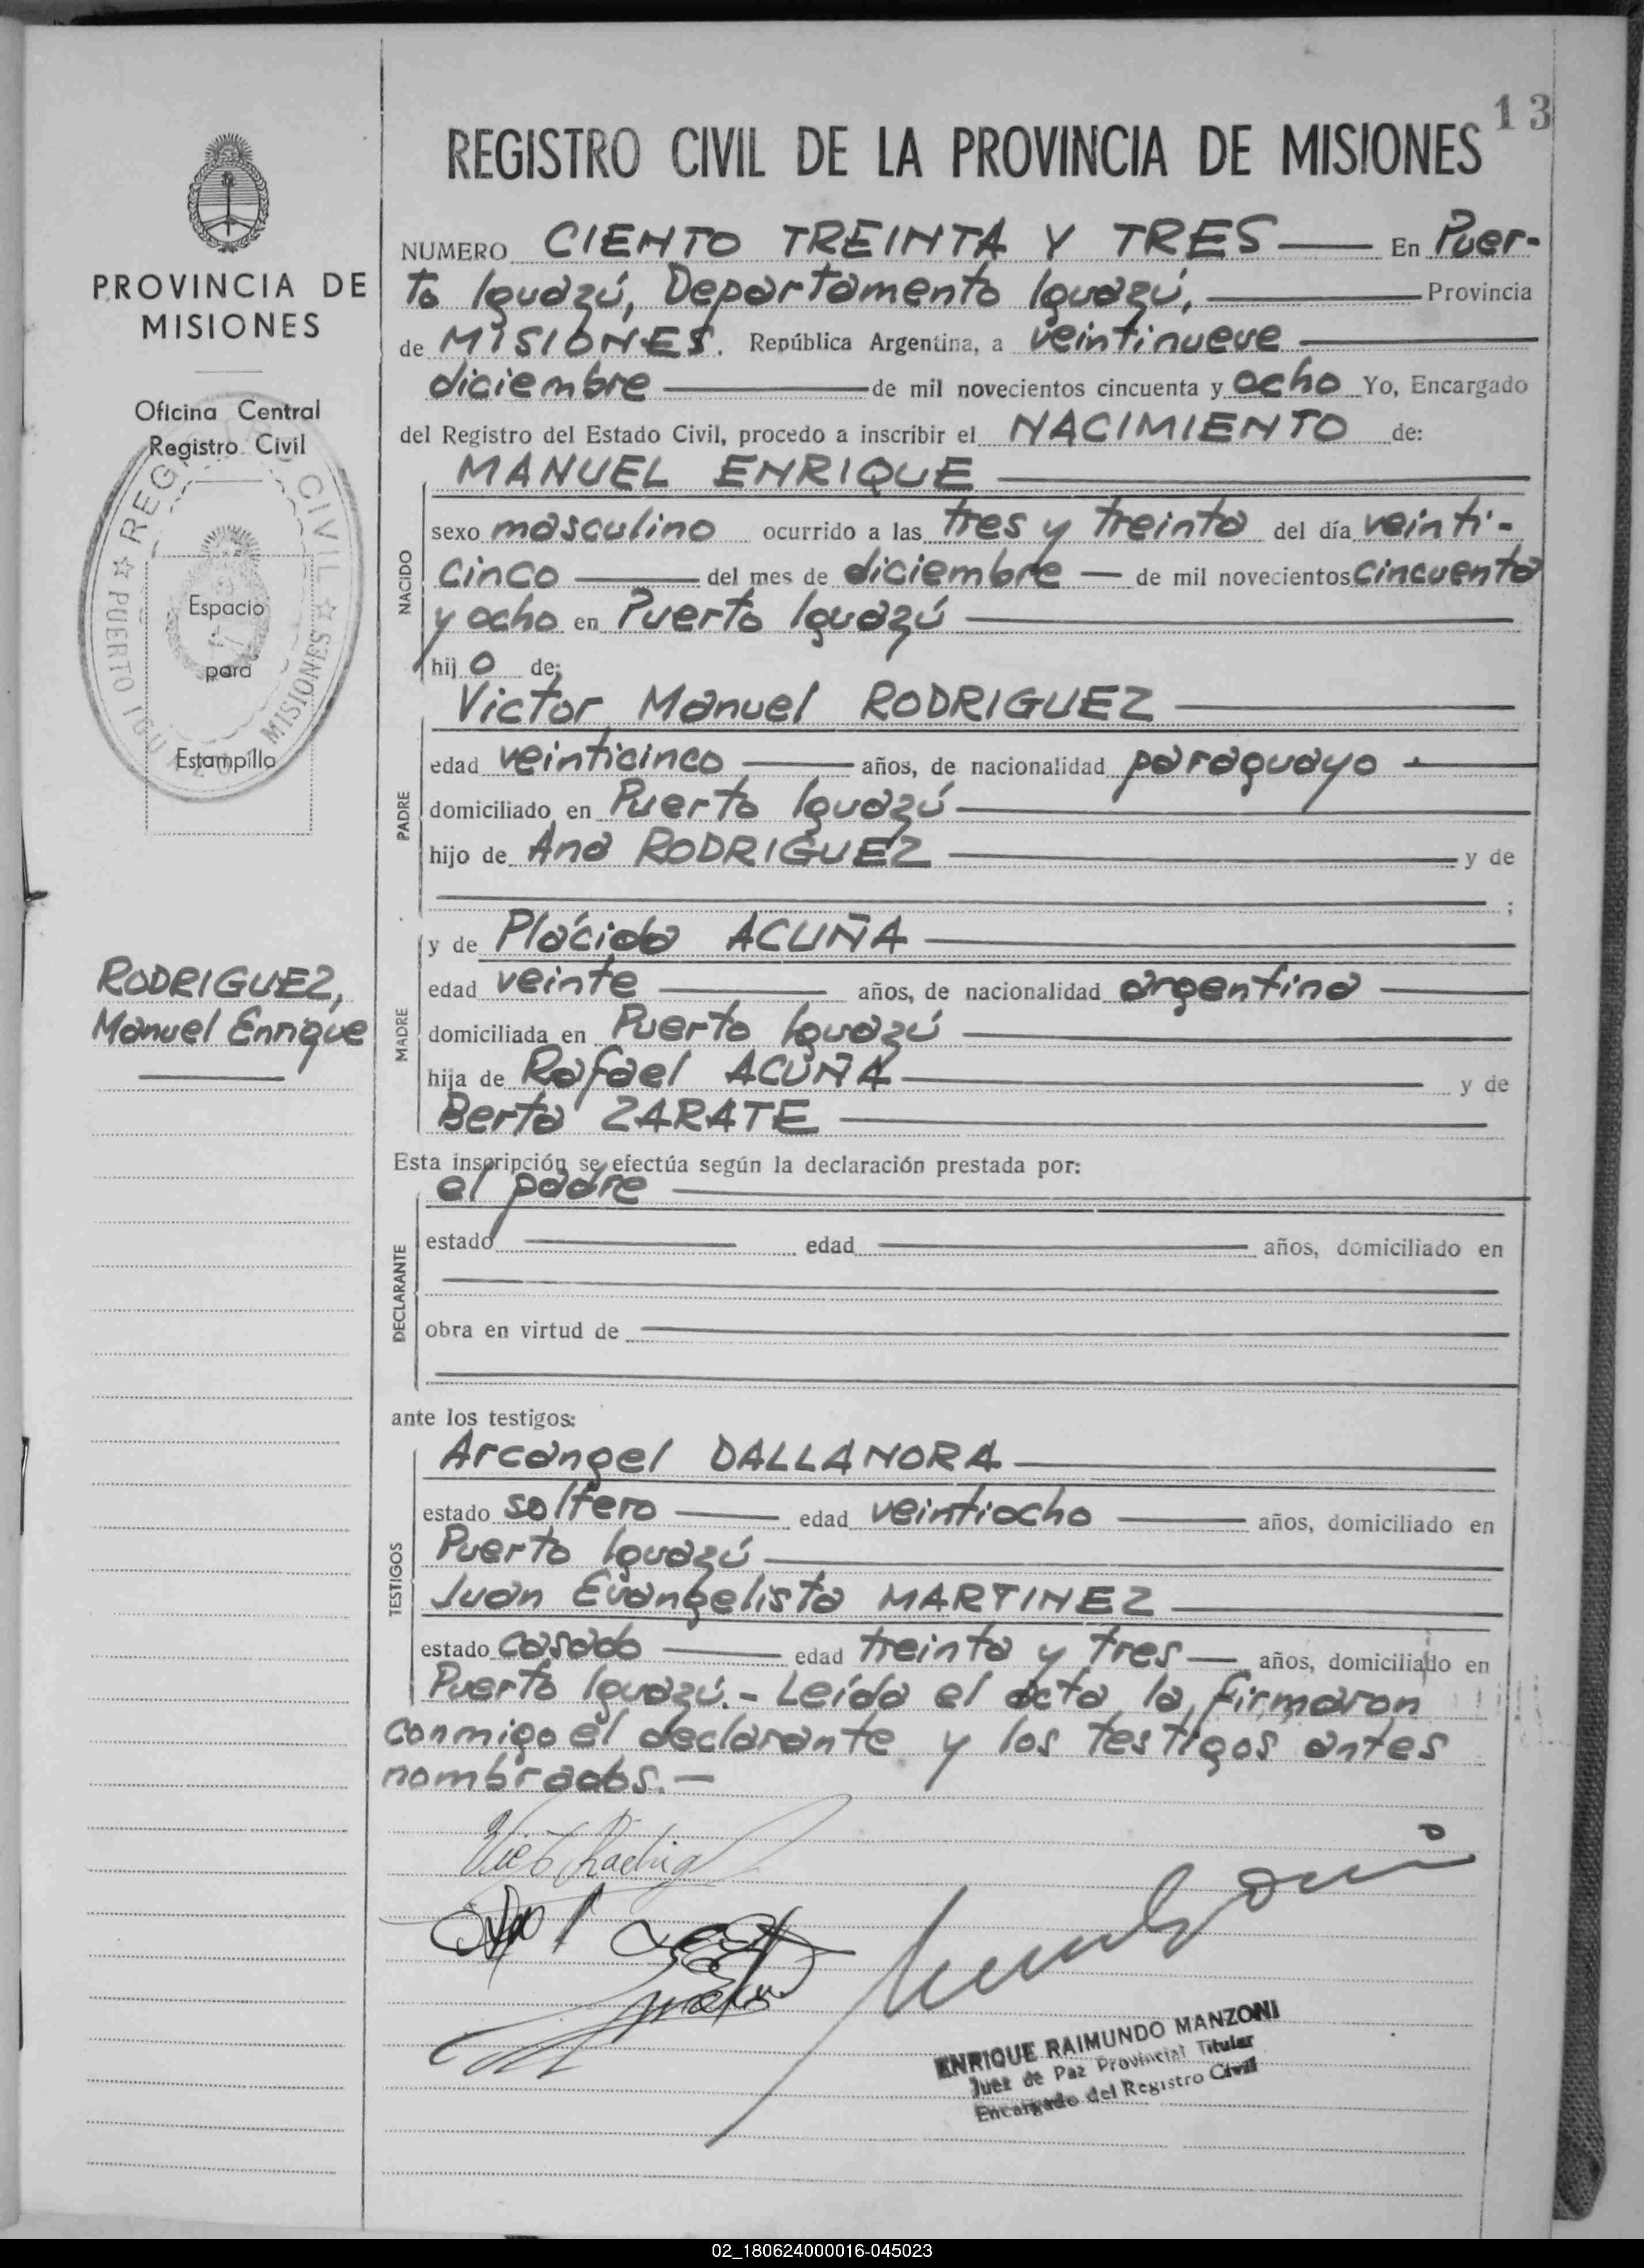 13
REGISTRO CIVIL DE LA PROVINCIA DE MISIONES
PROVINCIA DE
MISIONES
Oficina Central
Registro Civil
REGISTRO CIVIL
☆ PUERTO IGUAZU MISIONES ☆
Espacio
para
Estampilla
RODRIGUEZ,
Manuel Enrique
NUMERO CIENTO TREINTA Y TRES En Puer-
to Iguazú, Departamento Iguazú, Provincia
de MISIONES. República Argentina, a veintinueve
diciembre de mil novecientos cincuenta y ocho Yo, Encargado
del Registro del Estado Civil, procedo a inscribir el NACIMIENTO de:
NACIDO
MANUEL ENRIQUE
sexo masculino ocurrido a las tres y treinta del día veinti-
cinco del mes de diciembre de mil novecientos cincuenta
y ocho en Puerto Iguazú
hij o de:
PADRE
Victor Manuel RODRIGUEZ
edad veinticinco años, de nacionalidad paraguayo
domiciliado en Puerto Iguazú
hijo de Ana RODRIGUEZ y de
;
MADRE
y de Plácida ACUÑA
edad veinte años, de nacionalidad argentina
domiciliada en Puerto Iguazú
hija de Rafael ACUÑA y de
Berta ZARATE
Esta inscripción se efectúa según la declaración prestada por:
DECLARANTE
el padre
estado edad años, domiciliado en
obra en virtud de
ante los testigos:
TESTIGOS
Arcangel DALLANORA
estado soltero edad veintiocho años, domiciliado en
Puerto Iguazú
Juan Evangelista MARTINEZ
estado casado edad treinta y tres años, domiciliado en
Puerto Iguazú.- Leída el acta la firmaron
conmigo el declarante y los testigos antes
nombrados.-
ENRIQUE RAIMUNDO MANZONI
Juez de Paz Provincial Titular
Encargado del Registro Civil
02_180624000016-045023